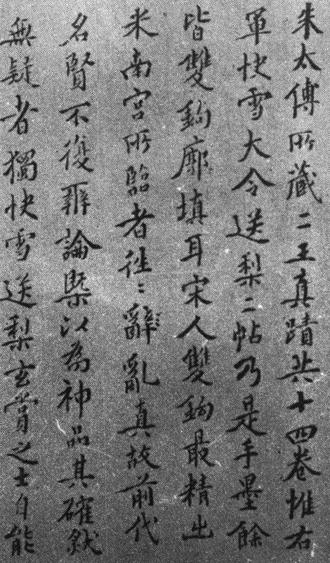 朱太傅所藏二王真蹟共十四卷惟右
軍快雪大令送梨二帖乃是手墨餘
皆雙鉤廓填耳宋人雙鉤最精出
米南宮所臨者往〻辭亂真故前代
名賢不復辨論槩以為神品其確然
無疑者獨快雪送梨玄賞之士自能